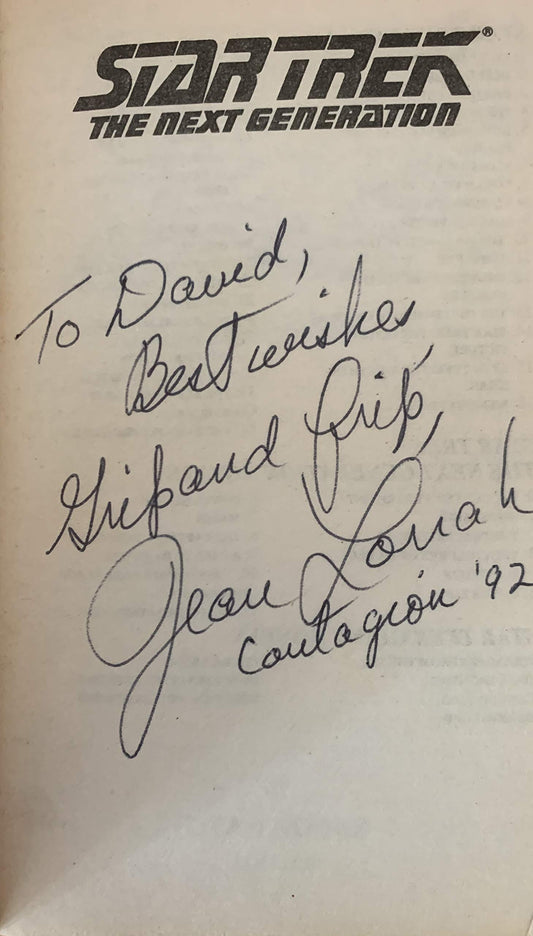 STAR TREK®
THE NEXT GENERATION
To David,
Best wishes
Grip and Grip,
Jean Lorrah
Contagion '92